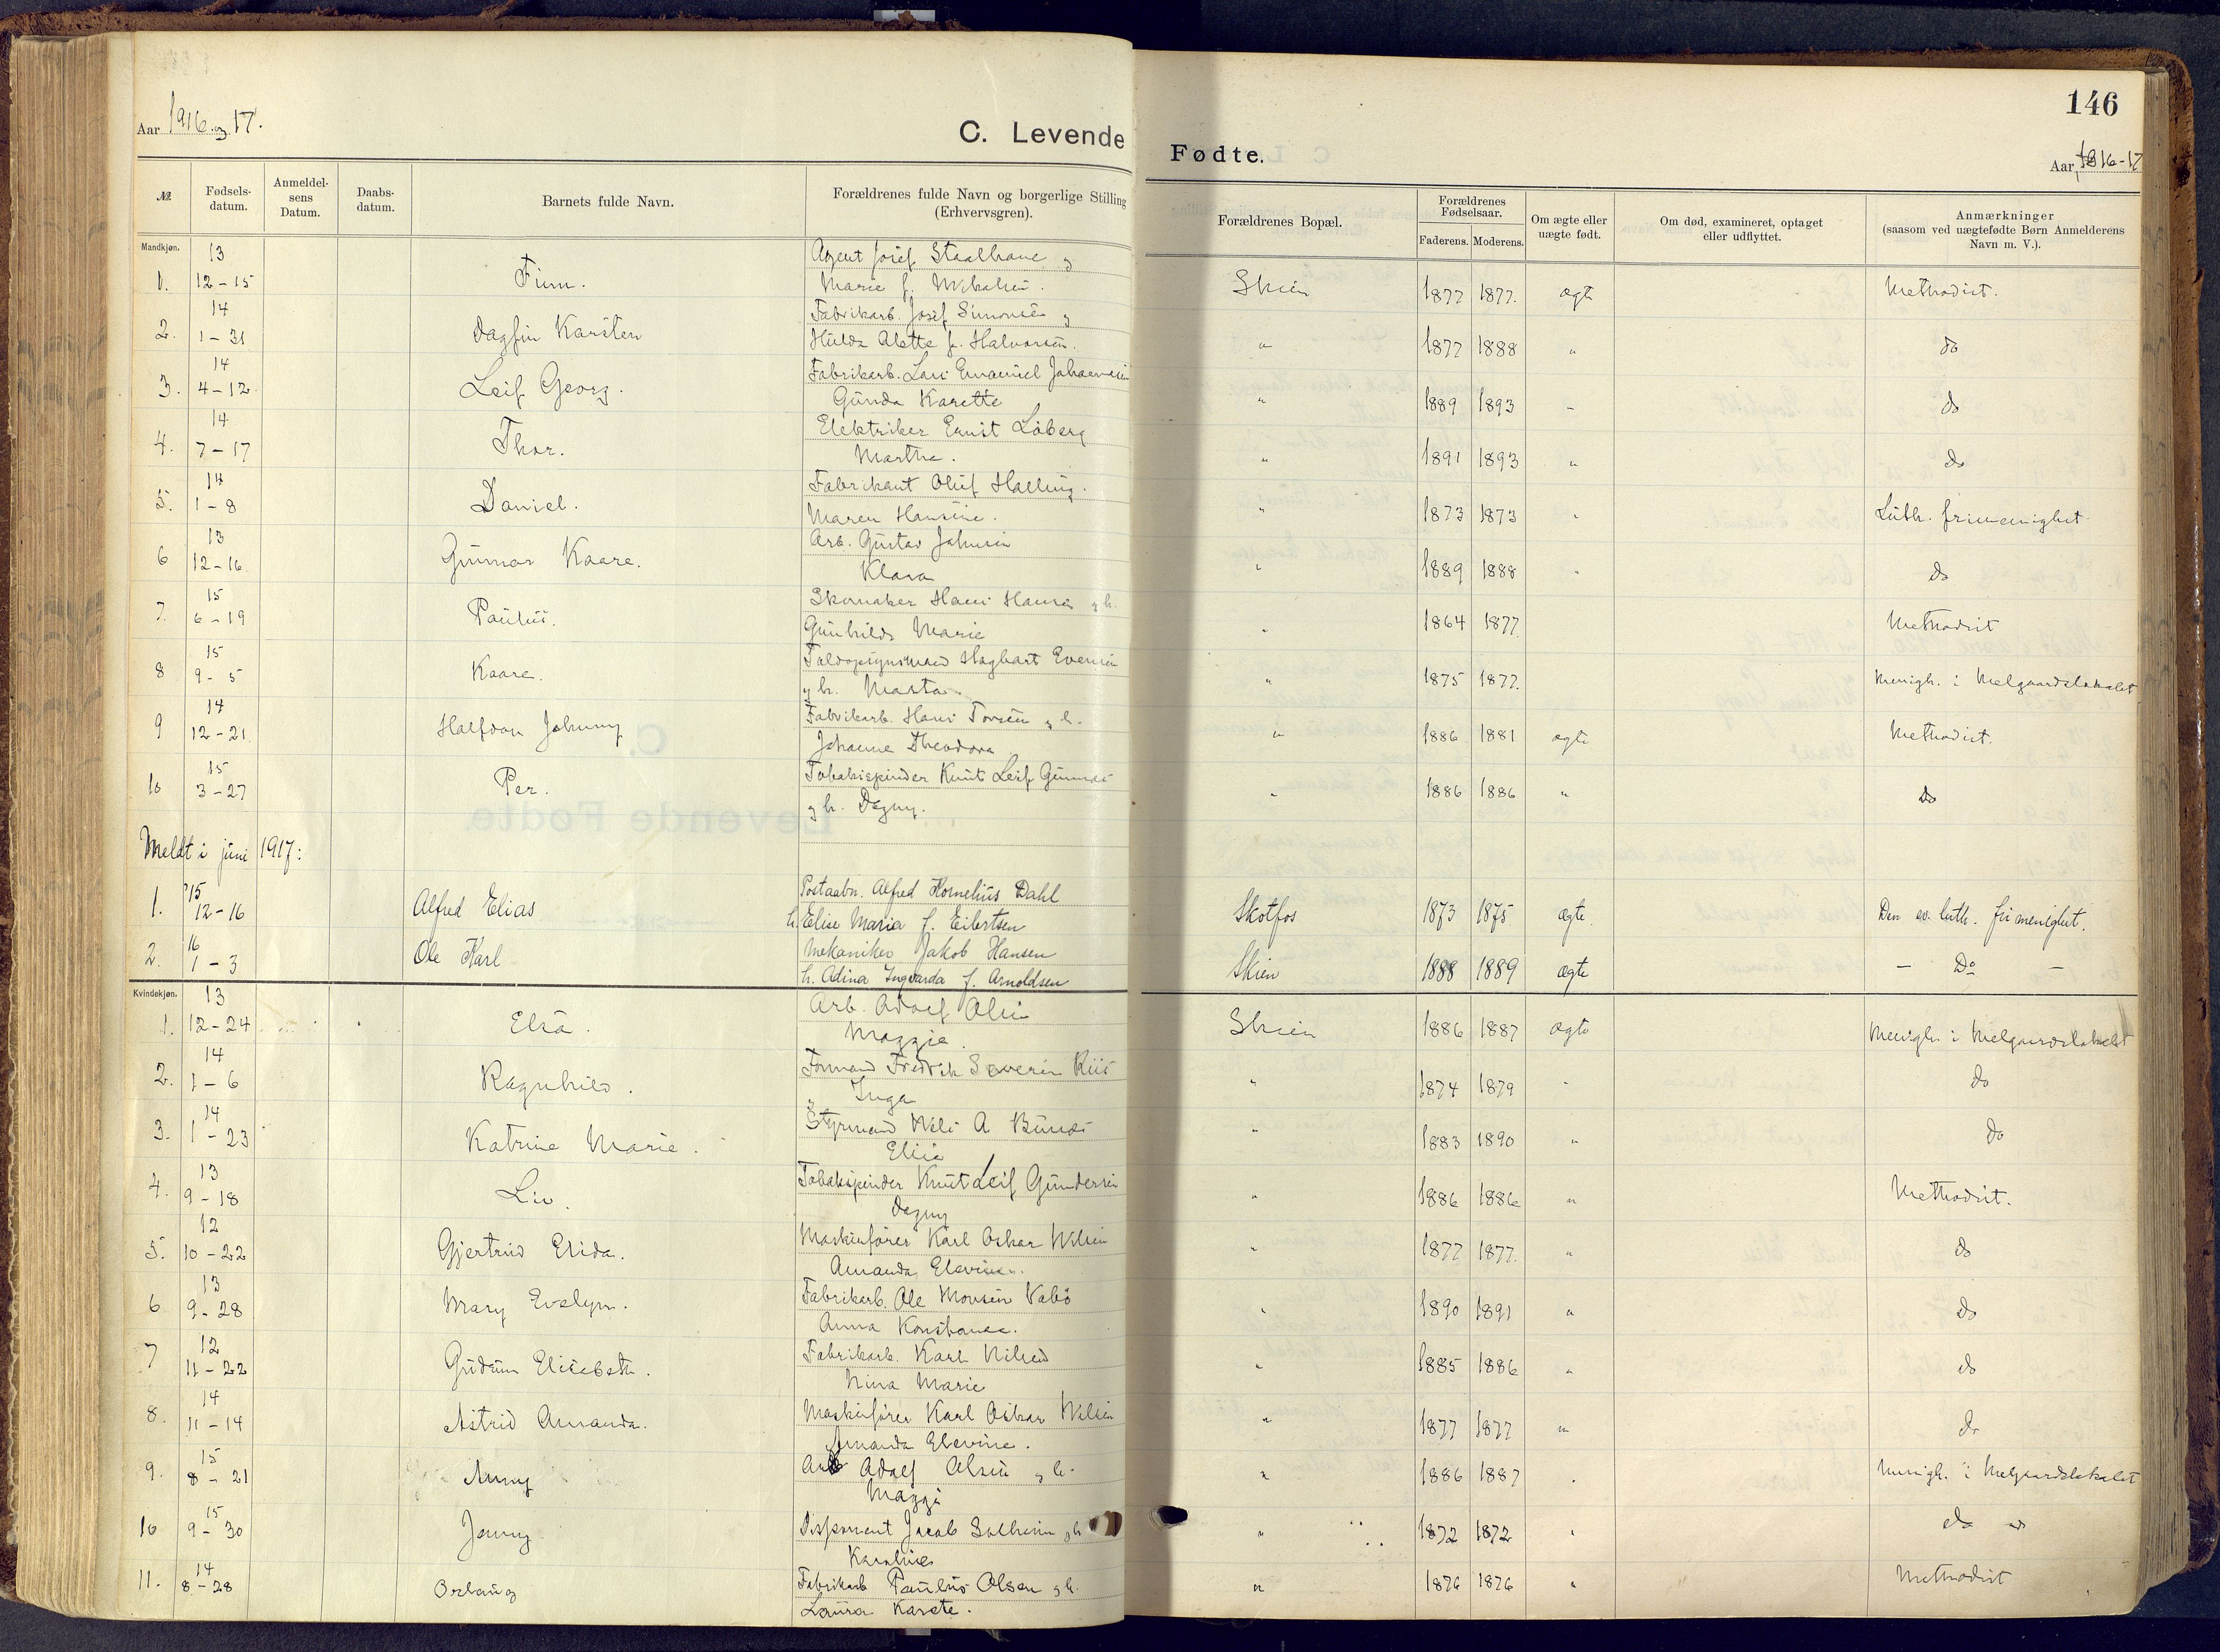 146
Aar 1916 og 17.
C. Levende
Fødte.
Aar 1916-17
No. Fødsels-datum. Anmeldel-sens Datum. Daabs-datum. Barnets fulde Navn. Forældrenes fulde Navn og borgerlige Stilling (Erhvervsgren). Forældrenes Bopæl. Forældrenes Fødselsaar. Faderens. Moderens. Om ægte eller uægte født. Om død, examineret, optaget eller udflyttet. Anmærkninger (saasom ved uægtefødte Børn Anmelderens Navn m. V.).
Mandkjøn. 13 Agent Josef Staalhane og
1. 12-15 Finn. Marie f. Skien 1877 1877. ægte Methodist.
14 Fabrikarb. Josef Simonsen og
2. 1-31 Dagfin Karsten Hulda Alette f. Halvorsen. " 1877 1888 " do
14 Fabrikarb. Lars Emanuel Johannesen
3. 4-12. Leif Georg. Gunda Karette " 1889 1893 " do
14 Elektriker Ernst Løberg
4. 7-17 Thor. Martha. " 1891 1893 " do
14 Fabrikant Oluf Halling.
5. 1-8 Daniel. Maren Hansine. " 1873 1873 " Luth. frimenighet
13 Arb. Gustav Johnsen
6 12-16 Gunnar Kaare. Klara " 1889 1888 " do
15 Skomaker Hans Hansen og h.
7. 6-19 Paulus. Gunhilds Marie " 1864 1877 Methodist
15 Hagbart Evensen
8 9-5 Kaare. og h. Marta. " 1875 1877. Menigh. i Melgaardslokalet
14 Fabrikarb. Hans Torsen og h.
9 12-21. Halfdan Johnny Johanne Theodora " 1886 1881 ægte Methodist.
15 Tobakspinder Knut Leif
10 3-27 Per. og h. Dagny. " 1886 1886 " do
Meldt i juni 1917:
'15 Postaabn. Alfred Kornelius Dahl
1. 12-16 Alfred Elias h. Elise Maria f. Eilertsen Skotfos 1873 1875 ægte Den ev. luth. frimenighet.
16 Mekaniker Jakob Hansen
2. 1-3 Ole Karl h. Adina Ingvarda f. Arnoldsen Skien 1888 1889 ægte - Do -
Kvindekjøn. 13 Arb. Adolf Olsen
1. 12-24 Elsa. Maggie. Skien 1886 1887 ægte Menigh. i Melgaardslokalet
14 Formand Fredrik Severin Riis
2. 1-6 Ragnhild. og Inga " 1874 1879 " do
14 Styrmand Nils A.
3. 1-23 Katrine Marie. Elise " 1883 1890 " do
13 Tobakspinder Knut Leif Gundersen
4. 9-18 Liv. Dagny " 1886 1886 " Methodist.
12 Maskinfører Karl Oskar Nilsen
5. 10-22 Gjertrud Elida. Amanda Elevine. " 1877 1877. " do
13 Fabrikarb. Ole Monsen Vabø
6. 9-28 Mary Evelyn. Anna Konstance. " 1890 1891 " do
12 Fabrikarb. Karl Nilsen
7 11-22 Gudrun Elisebeth. Nina Marie " 1885 1886 " do
14 Maskinfører Karl Oskar Nilsen
8. 11-14 Astrid Amanda. Amanda Elevine. " 1877 1877 " do
15 Arb Adolf Olsen og h.
9. 8-21 Anny Maggi " 1886 1887 " Menigh. i Melgaardslokalet
15 Disponent Jacob Solheim og h
10 9-30 Jenny. Karoline " 1872 1872 " do
14 Fabrikarb Paulus Olsen og h.
11. 8-28 Oslaug Laura Karete. " 1876 1876 " Methodist